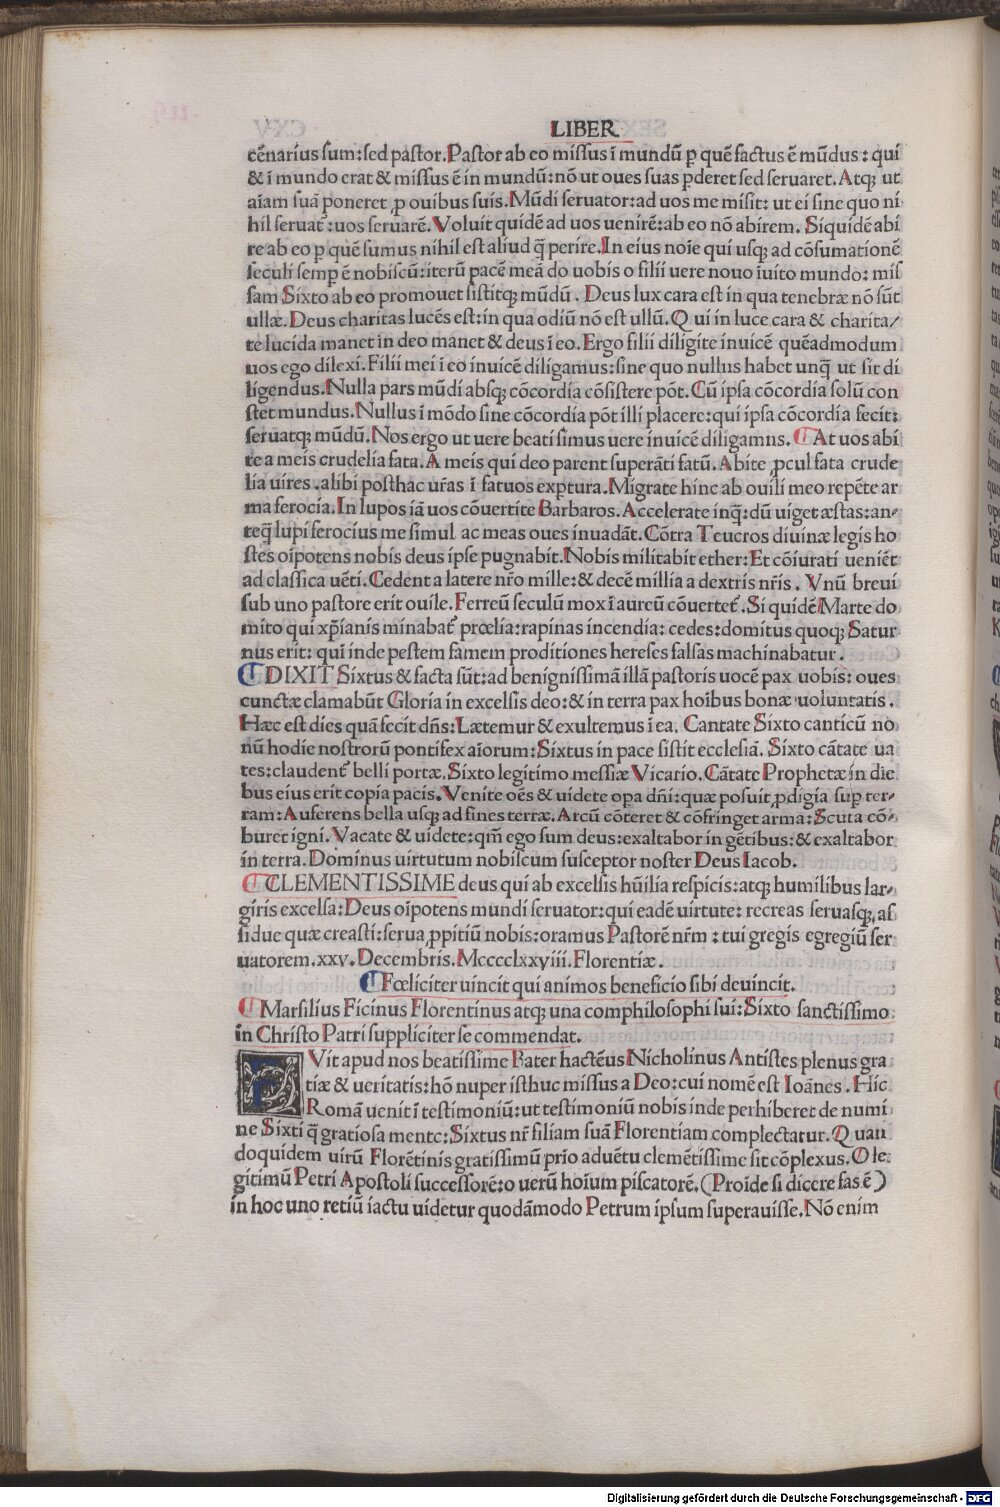 LIBER
cēnarius sum:sed pastor.Pastor ab eo missus ī mundū ꝑ quē factus ē mūdus : qui
& ī mundo erat & missus ē in mundū:nō ut oues suas ꝑderet sed seruaret. Atq; ut
aīam suā poneret ꝓ ouibus suis. Mūdi seruator:ad uos me misit: ut ei sine quo ni
hil seruat᷑:uos seruarē.Voluit quidē ad uos uenirē:ab eo nō abirem. Siquidē abi
re ab eo ꝑ quē sumus nihil est aliud q̄ perire.In eius noīe qui usq; ad cōsumationē
seculi semꝑ ē nobiscū:iterū pacē meā do uobis o filii uere nouo īuito mundo: mis
sam Sixto ab eo promouet sistitq; mūdū . Deus lux cara est in qua tenebræ nō sūt
ullæ.Deus charitas lucēs est:in qua odiū nō est ullū.Q ui in luce cara & charita/
te lucida manet in deo manet & deus ī eo. Ergo filii diligite inuicē quēadmodum
uos ego dilexi.Filii mei ī eo inuicē diligamus:sine quo nullus habet unq̄ ut sit di
ligendus.Nulla pars mūdi absq; cōcordia cōsistere pōt. Cū ipsa cōcordia solū con
stet mundus.Nullus ī mōdo sine cōcordia pōt illi placere:qui ipsa cōcordia fecit:
seruatq; mūdū.Nos ergo ut uere beati simus uere inuicē diligamns. At uos abi
te a meis crudelia fata. A meis qui deo parent superāti fatū. Abite ꝓcul fata crude
lia uires .alibi posthac ur̄as ī fatuos exptura.Migrate hinc ab ouili meo repēte ar
ma ferocia.In lupos iā uos cōuertite Barbaros. Accelerate inq̄:dū uiget æstas:an/
teq̄ lupi ferocius me simul ac meas oues inuadāt. Cōtra Teucros diuinæ legis ho
stes oīpotens nobis deus ipse pugnabit.Nobis militabit ether:Et cōiurati ueniēt
ad classica uēti. Cedent a latere nr̄o mille:& decē millia a dextris nr̄is . Vnū breui
sub uno pastore erit ouile. Ferreū seculū mox ī aureū cōuertet᷑. Si quidē Marte do
mito qui xp̄ianis minabat᷑ prœlia:rapinas incendia: cedes:domitus quoq; Satur
nus erit: qui inde pestem famem proditiones hereses falsas machinabatur .
DIXIT Sixtus & facta sūt:ad benignissimā illā pastoris uocē pax uobis: oues
cunctæ clamabūt Gloria in excelsis deo:& in terra pax hoībus bonæ uoluntatis .
Hæc est dies quā fecit dn̄s:Lætemur & exultemus ī ea. Cantate Sixto canticū no
nū hodie nostrorū pontifex aīorum:Sixtus in pace sistit ecclesiā. Sixto cātate ua
tes:claudent᷑ belli portæ.Sixto legitimo messiæ Vicario. Cātate Prophetæ in die
bus eius erit copia pacis.Venite oēs & uidete opa dn̄i:quæ posuit ꝓdigia suꝑ ter/
ram:Auferens bella usq; ad fines terræ.Arcū cōteret & cōfringet arma:Scuta cō/
buret igni.Vacate & uidete:qm̄ ego sum deus:exaltabor in gētibus:& exaltabor
in terra.Dominus uirtutum nobiscum susceptor noster Deus Iacob.
CLEMENTISSIME deus qui ab excelsis hūilia respicis:atq; humilibus lar/
giris excelsa:Deus oīpotens mundi seruator:qui eadē uirtute: recreas seruasq; as
sidue quæ creasti:serua ꝓpitiū nobis:oramus Pastorē nr̄m : tui gregis egregiū ser
uatorem.xxv.Decembris.Mccccclxxviii.Florentiæ.
Fœliciter uincit qui animos beneficio sibi deuincit.
Marsilius Ficinus Florentinus atq; una comphilosophi sui:Sixto sanctissimo
in Christo Patri suppliciter se commendat.
Vit apud nos beatissime Pater hactēus Nicholinus Antistes plenus gra
tiæ & ueritatis:hō nuper isthuc missus a Deo:cui nomē est Ioānes . Hic
Romā uenit ī testimoniū:ut testimoniū nobis inde perhiberet de numi
ne Sixti q̄ gratiosa mente:Sixtus nr̄ filiam suā Florentiam complectatur.Q uan
doquidem uirū Florētinis gratissimū prīo aduētu clemētissime sit cōplexus. O le
gitimū Petri Apostoli successorē:o uerū hoīum piscatorē.(Proīde si dicere fas ē)
in hoc uno retiū iactu uidetur quodāmodo Petrum ipsum superauisse.Nō enim
Digitalisierung gefördert durch die Deutsche Forschungsgemeinschaft - DFG